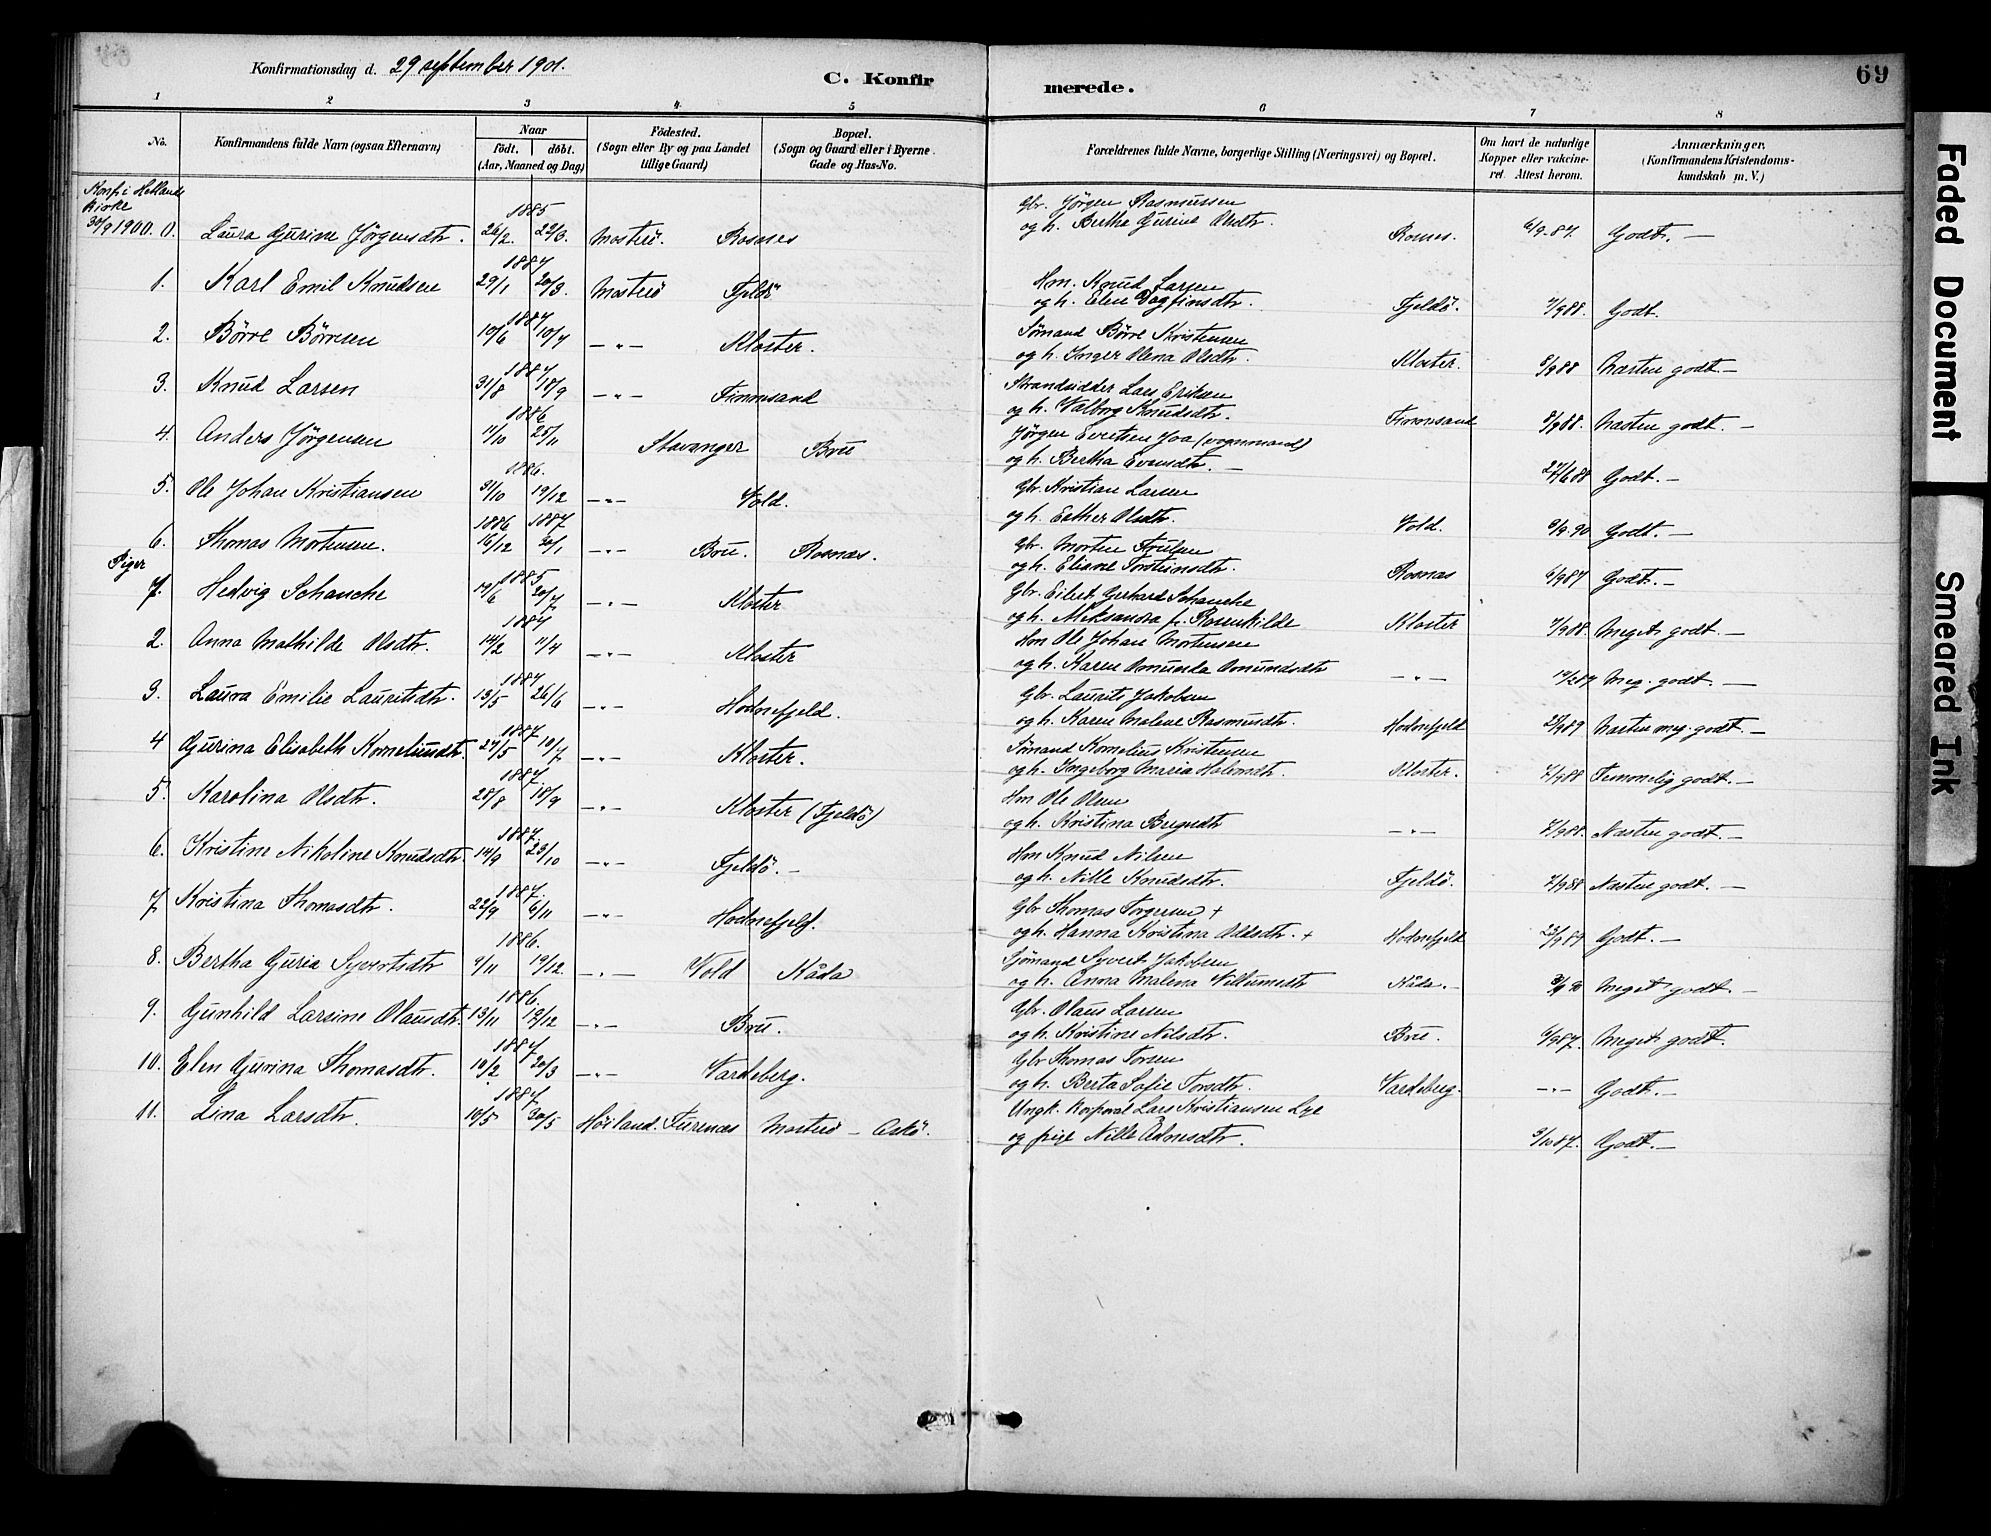 Konfirmationsdag d. 29 september 1901.
C. Konfir merede. 69
1 2 3 4 5 6 7 8
No.
Konfirmandens fulde Navn (ogsaa Efternavn)
Naar
födt. döbt.
(Aar, Maaned og Dag)
Födested.
(Sogn eller By og paa Landet
tillige Gaard)
Bopæl.
(Sogn og Gaard eller i Byerne
Gade og Hus-No.
Forældrenes fulde Navne, borgerlige Stilling (Næringsvei) og Bopæl.
Om havt de naturlige
Kopper eller vakcine-
ret. Attest herom.
Anmærkninger.
(Konfirmandens Kristendoms-
kundskab m. V.)
Konf. i Hetlands
kirke
30/9 1900. 0. Laura Gurine Jörgensdtr. 1885 26/2. 22/3. Mosterö. Rosnes
Gbr. Jörgen Rasmussen
og h. Bertha Gurine Olsdtr. Rosnes. 6/9.87. Godt. —
1. Karl Emil Knudsen 1887 29/1 20/3. Mosterö Fjeldö
Hm. Knud Larsen
og h. Elen Dagfinsdtr. Fjeldö. 7/9 88. Godt.
2. Börre Börresen 1887 10/6 10/7 —"— Kloster.
Sömand Börre Kristensen
og h. Inger Olena Olsdtr. Kloster. 8/9 88 Næsten godt.—
3. Knud Larsen 1887 31/8 18/9 —"— Finnesand
Strandsidder Lars Eriksen
og h. Valborg Knudsdtr. Finnesand 8/9 88. Næsten godt. —
4. Anders Jörgensen 1886 11/10 25/11 Stavanger Bru
Jörgen Evertsen Joa (vognmand)
og h. Bertha Evensdtr. — 27/6 88 Godt. —
5. Ole Johan Kristiansen 1886. 31/10 19/12 —"— Vold.
Gbr. Kristian Larsen
og h. Esther Olsdtr. Vold. 9/9.90 Godt. —
6. Thomas Mortensen. 1886 1887 16/12 30/1 —"— Bru. Rosnæs.
Gbr. Morten
og h. Eliane Torsteinsdtr. Rosnæs 6/9 87 Godt.—
Piger
1. Hedvig Schanche 1885 19/6 20/7 —"— Kloster
Gbr. Eilert Gerhard Schanche
og h. Aleksandra f. Rosenkilde Kloster 7/9 88. Meget godt. —
2. Anna Mathilde Olsdtr. 1887 14/2 11/4 —"— Kloster
Hm Ole Johan Mortensen
og h. Karen Amunda Amundsdtr —"— Meg. godt. —
3. Laura Emilie Lauritsdtr. 1887 13/5 26/6 —"— Hodnefjeld.
Gbr. Laurits Jakobsen
og h. Karen Malene Rasmusdtr. Hodnefjeld Næsten meg. godt.—
4 Gurina Elisabeth Korneliusdtr. 1887. 27/5 10/7 —"— Kloster.
Sömand Kornelius Kristensen
og h. Ingeborg Maria Kloster. 7/9 88 Temmelig godt. —
5. Karolina Olsdtr. 1887. 28/8 18/9 —"— Kloster (Fjeldö)
Hm Ole Olsen
og h. Kristina —"— 7/9 88. Næsten godt. —
6. Kristine Nikoline Knudsdtr. 1887. 14/9 23/10 —"— Fjeldö. —
Hm Knud Nilsen
og h. Nille Knudsdtr. Fjeldö. 7/9 88 Næsten godt. —
7 Kristina Thomasdtr. 1887. 22/9 6/11 —"— Hodnefjeld.
Gbr Thomas Torgersen +
og h. Hanna Kristina + Hodnefjeld 22/9 89 Godt.—
8. Bertha Guria Syvertsdtr 1886. 9/11 19/12. —"— Vold Kåda
Sjömand Syvert Jakobsen
og h. Anna Malena Villumsdtr Kåda.— Meget godt. —
9. Gunhild Larsine Olausdtr. 1886. 13/11 12/12 —"— Bru.
Gbr. Olaus Larsen
og h. Kristine Nilsdtr. Bru. 6/9 87. Meget godt.
10. Elen Gurina Thomasdtr. 1887 10/2 20/3 —"— Vardeberg.
Gbr Thomas Torsen
og h. Berta Sofie Torsdtr. Vardeberg. —"— Godt.—
11. Lina Larsdtr. 1887 10/5 30/5 Höiland. Furenæs Mosterö — Askö.
Ungk. Korporal Lars Kristiansen Lye
og pige Nille Adnesdtr. 3/10 87. Godt.—
Faded Document
Smeared Ink